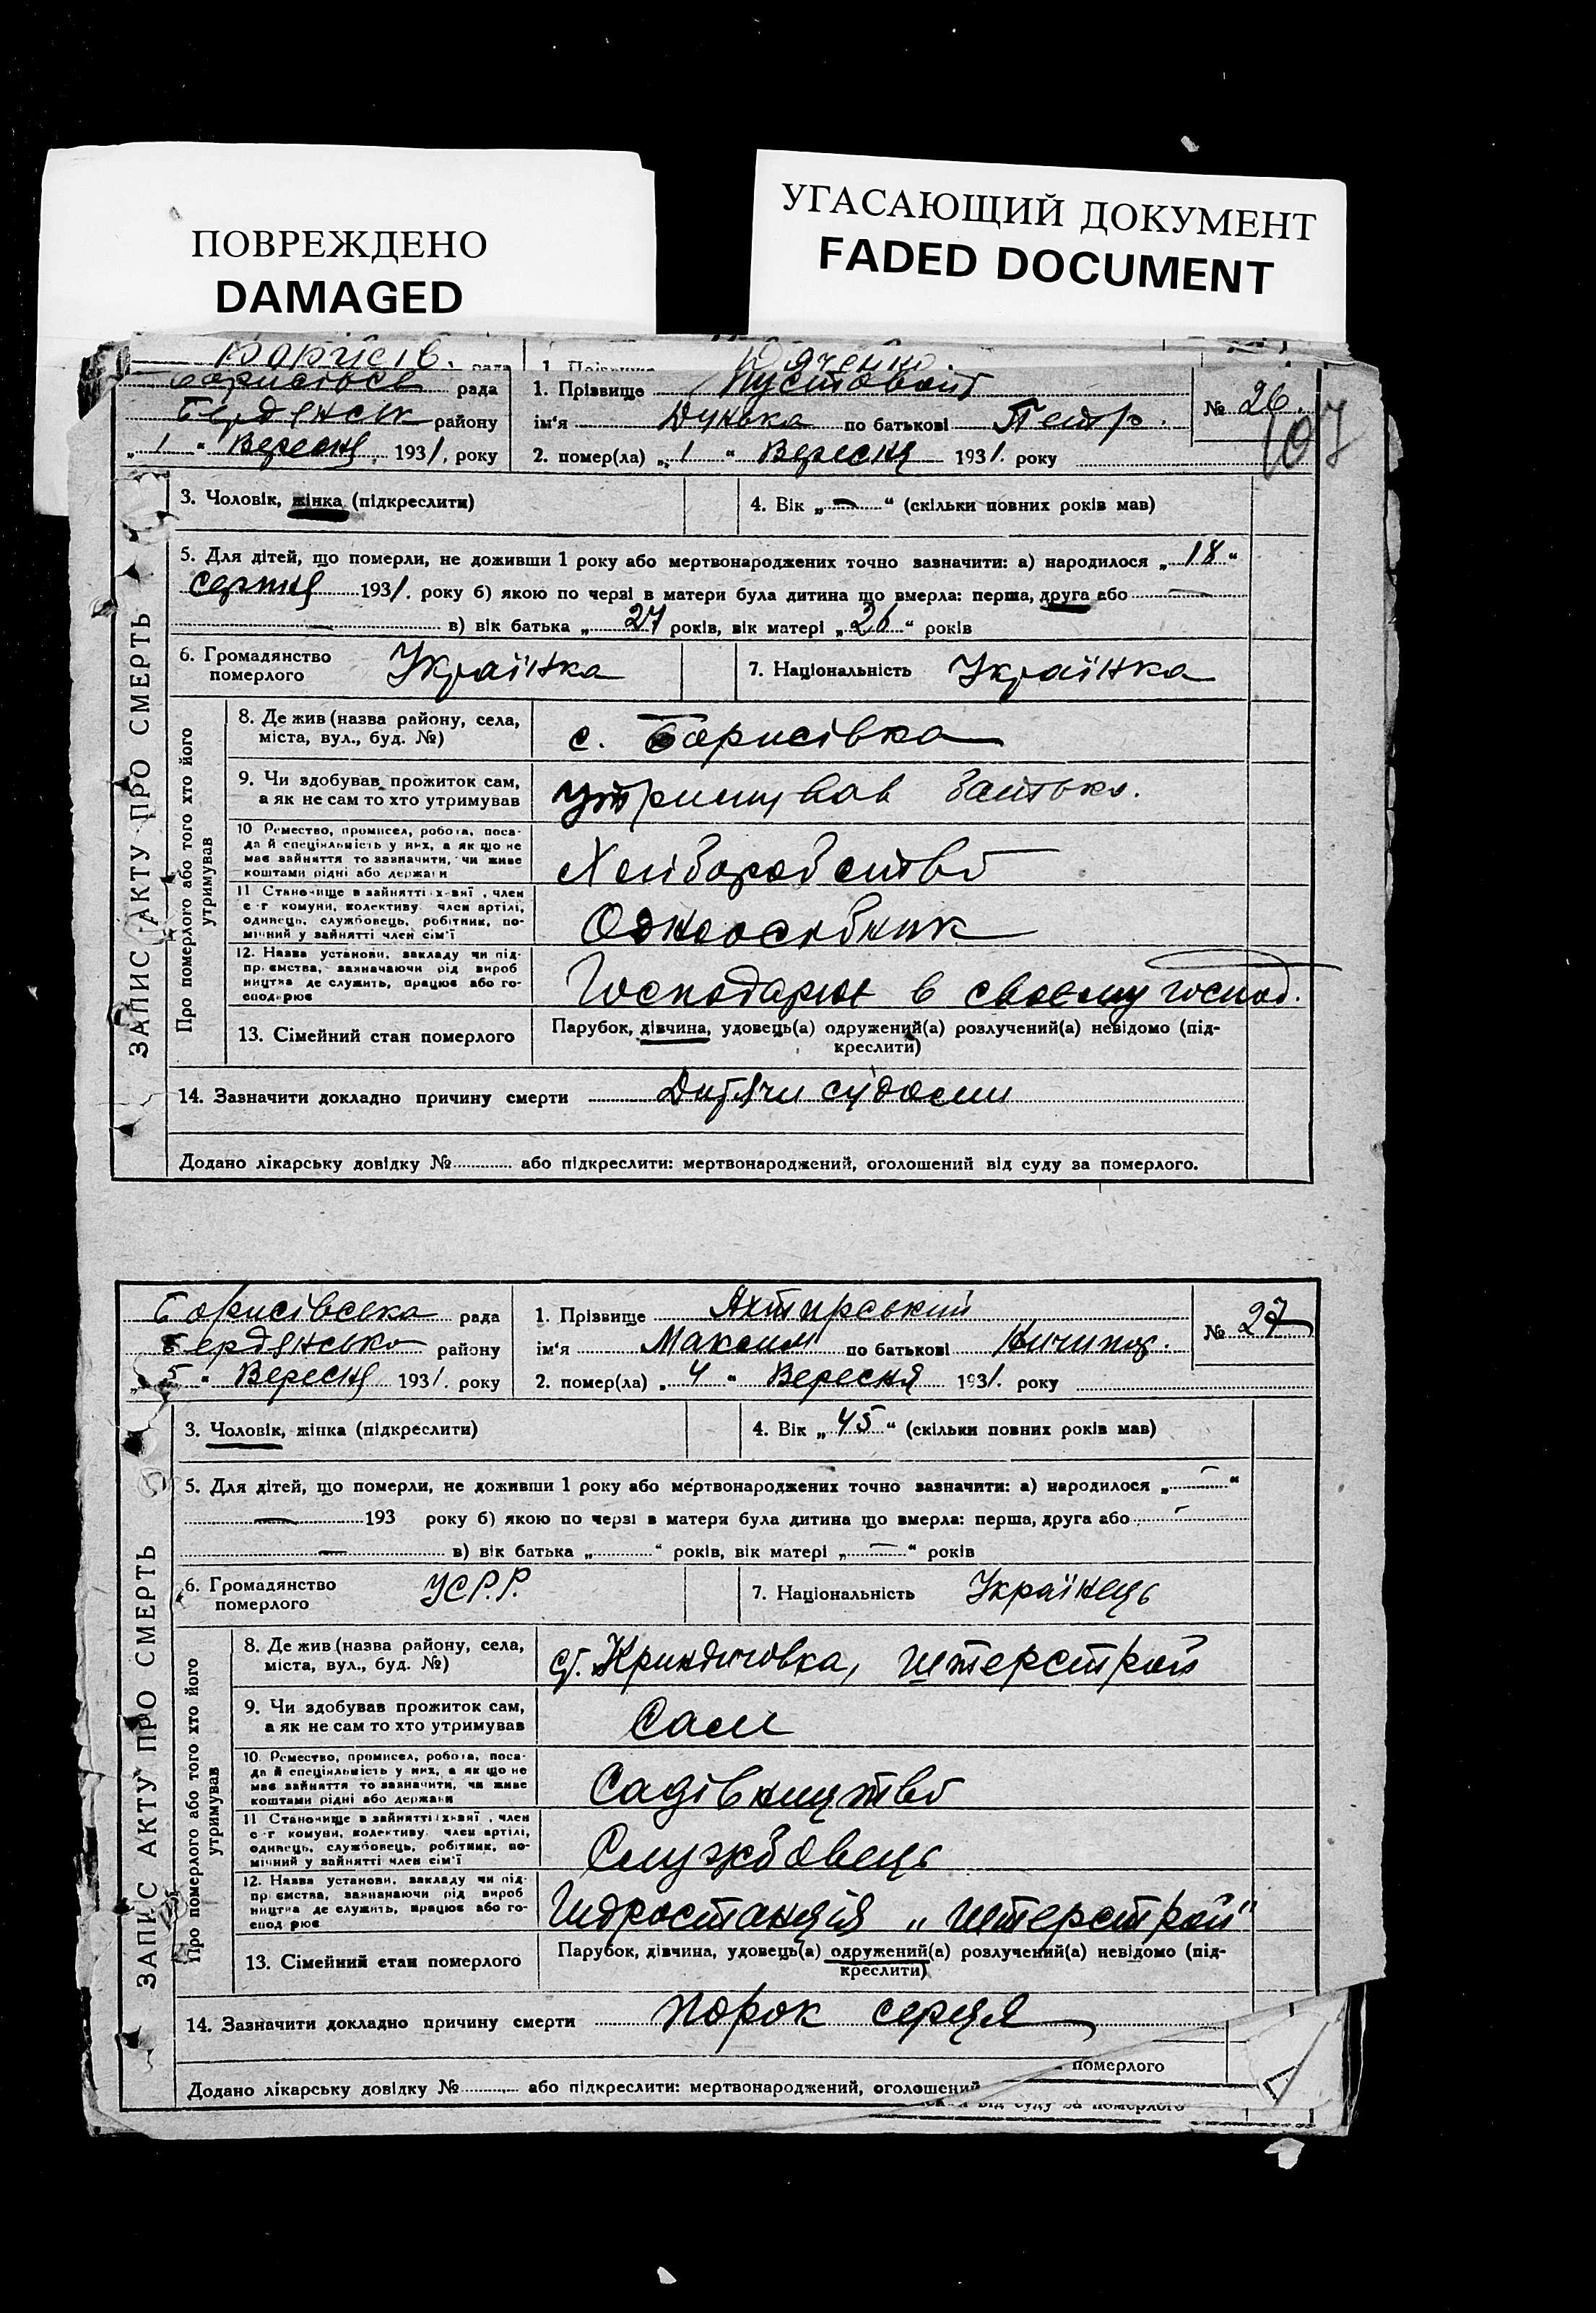 ПОВРЕЖДЕНО
DAMAGED
УГАСАЮЩИЙ ДОКУМЕНТ
FADED DOCUMENT
Борисів. рада 1. Прізвище Дяченко
Борисівсь рада 1. Прізвище Пустовойт № 26.
Бердянськ району ім'я Дунька по батькові Петр. 107
„1“ Вересня 1931, року 2. помер(ла) „1“ Вересня 1931. року
ЗАПИС АКТУ ПРО СМЕРТЬ
3. Чоловік, жінка (підкреслити) 4. Вік „—“ (скільки повних років мав)
5. Для дітей, що померли, не доживши 1 року або мертвонароджених точно зазначити: а) народилося „18“
серпня 1931. року б) якою по черзі в матери була дитина що вмерла: перша, друга або —
— в) вік батька „27 років, вік матері „26“ років
6. Громадянство померлого Українка 7. Національність Українка
Про померлого або того хто його утримував
8. Де жив (назва району, села,
міста, вул., буд. №) с. Борисівка
9. Чи здобував прожиток сам,
а як не сам то хто утримував утримував батько.
10 Ремество, промисел, робота, поса-
да й спеціяльність у них, а як що не
має зайняття то зазначити, чи живе
коштами рідні або держави Хліборобство
11 Становище в зайнятті: хазяї, член
с-г комуни, колективу член артілі,
одинець, службовець, робітник, по-
мічний у зайнятті член сім'ї Одноосібник
12. Назва установи, закладу чи під-
приємства, зазначаючи рід вироб
ництва де служить, працює або го-
сподарює Господарює в своєму господ.
13. Сімейний стан померлого Парубок, дівчина, удовець(а) одружений(а) розлучений(а) невідомо (під-
креслити)
14. Зазначити докладно причину смерти Дитячи судоми
Додано лікарську довідку № або підкреслити: мертвонароджений, оголошений від суду за померлого.
Борисівська рада 1. Прізвище Яхтирський № 27
Бердянсько району ім'я Максим по батькові Ничипор.
„5“ Вересня 1931. року 2. помер(ла) „4“ Вересня 1931. року
ЗАПИС АКТУ ПРО СМЕРТЬ
3. Чоловік, жінка (підкреслити) 4. Вік „45“ (скільки повних років мав)
5. Для дітей, що померли, не доживши 1 року або мертвонароджених точно зазначити: а) народилося „—“
— 193 року б) якою по черзі в матери була дитина що вмерла: перша, друга або —
— в) вік батька „ “ років, вік матері „—“ років
6. Громадянство померлого УСР.Р. 7. Національність Українець
Про померлого або того хто його утримував
8. Де жив (назва району, села,
міста, вул., буд. №) ст. Криндичовка, Штерстрой
9. Чи здобував прожиток сам,
а як не сам то хто утримував Сам
10. Ремество, промисел, робота, поса-
да й спеціяльність у них, а як що не
має зайняття то зазначити, чи живе
коштами рідні або держави Садівництво
11 Становище в зайнятті: хазяї, член
с-г комуни, колективу член артілі,
одинець, службовець, робітник, по-
мічний у зайнятті член сім'ї Службовець
12. Назва установи, закладу чи під-
приємства, зазначаючи рід вироб
ництва де служить, працює або го-
сподарює Гидростанція „Штерстрой“
13. Сімейний стан померлого Парубок, дівчина, удовець(а) одружений(а) розлучений(а) невідомо (під-
креслити)
14. Зазначити докладно причину смерти порок серця
померлого
Додано лікарську довідку № або підкреслити: мертвонароджений, оголошений
від суду за померлого